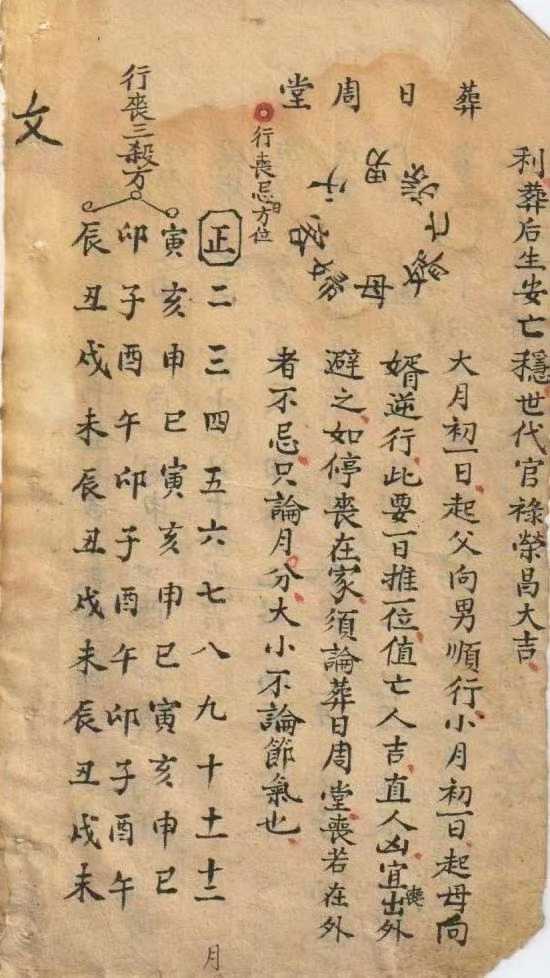 利葬后生安亡穩世代官祿榮昌大吉
葬日周堂
男
孫
亡
母
客
大月初一日起父向男順行小月初一日起母向
婿逆行此要一日推一位值亡人吉直人凶宜出喪外
避之如停喪在家須論葬日周堂喪若在外
者不忌只論月分大小不論節氣也
行喪忌日方位
正二三四五六七八九十十一十二月
行喪三殺方
寅亥申巳寅亥申巳寅亥申巳
卯子酉午卯子酉午卯子酉午
辰丑戌未辰丑戌未辰丑戌未
文